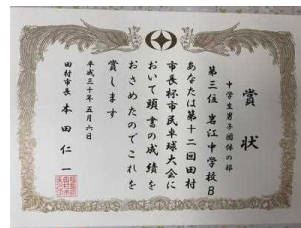 賞状
中学生男子団体の部
第三位 岩江中学校B
あなたは第十二回田村
市長杯市民卓球大会に
おいて頭書の成績を
おさめたのでこれを
賞します
平成三十年五月六日
田村市長 本田仁一